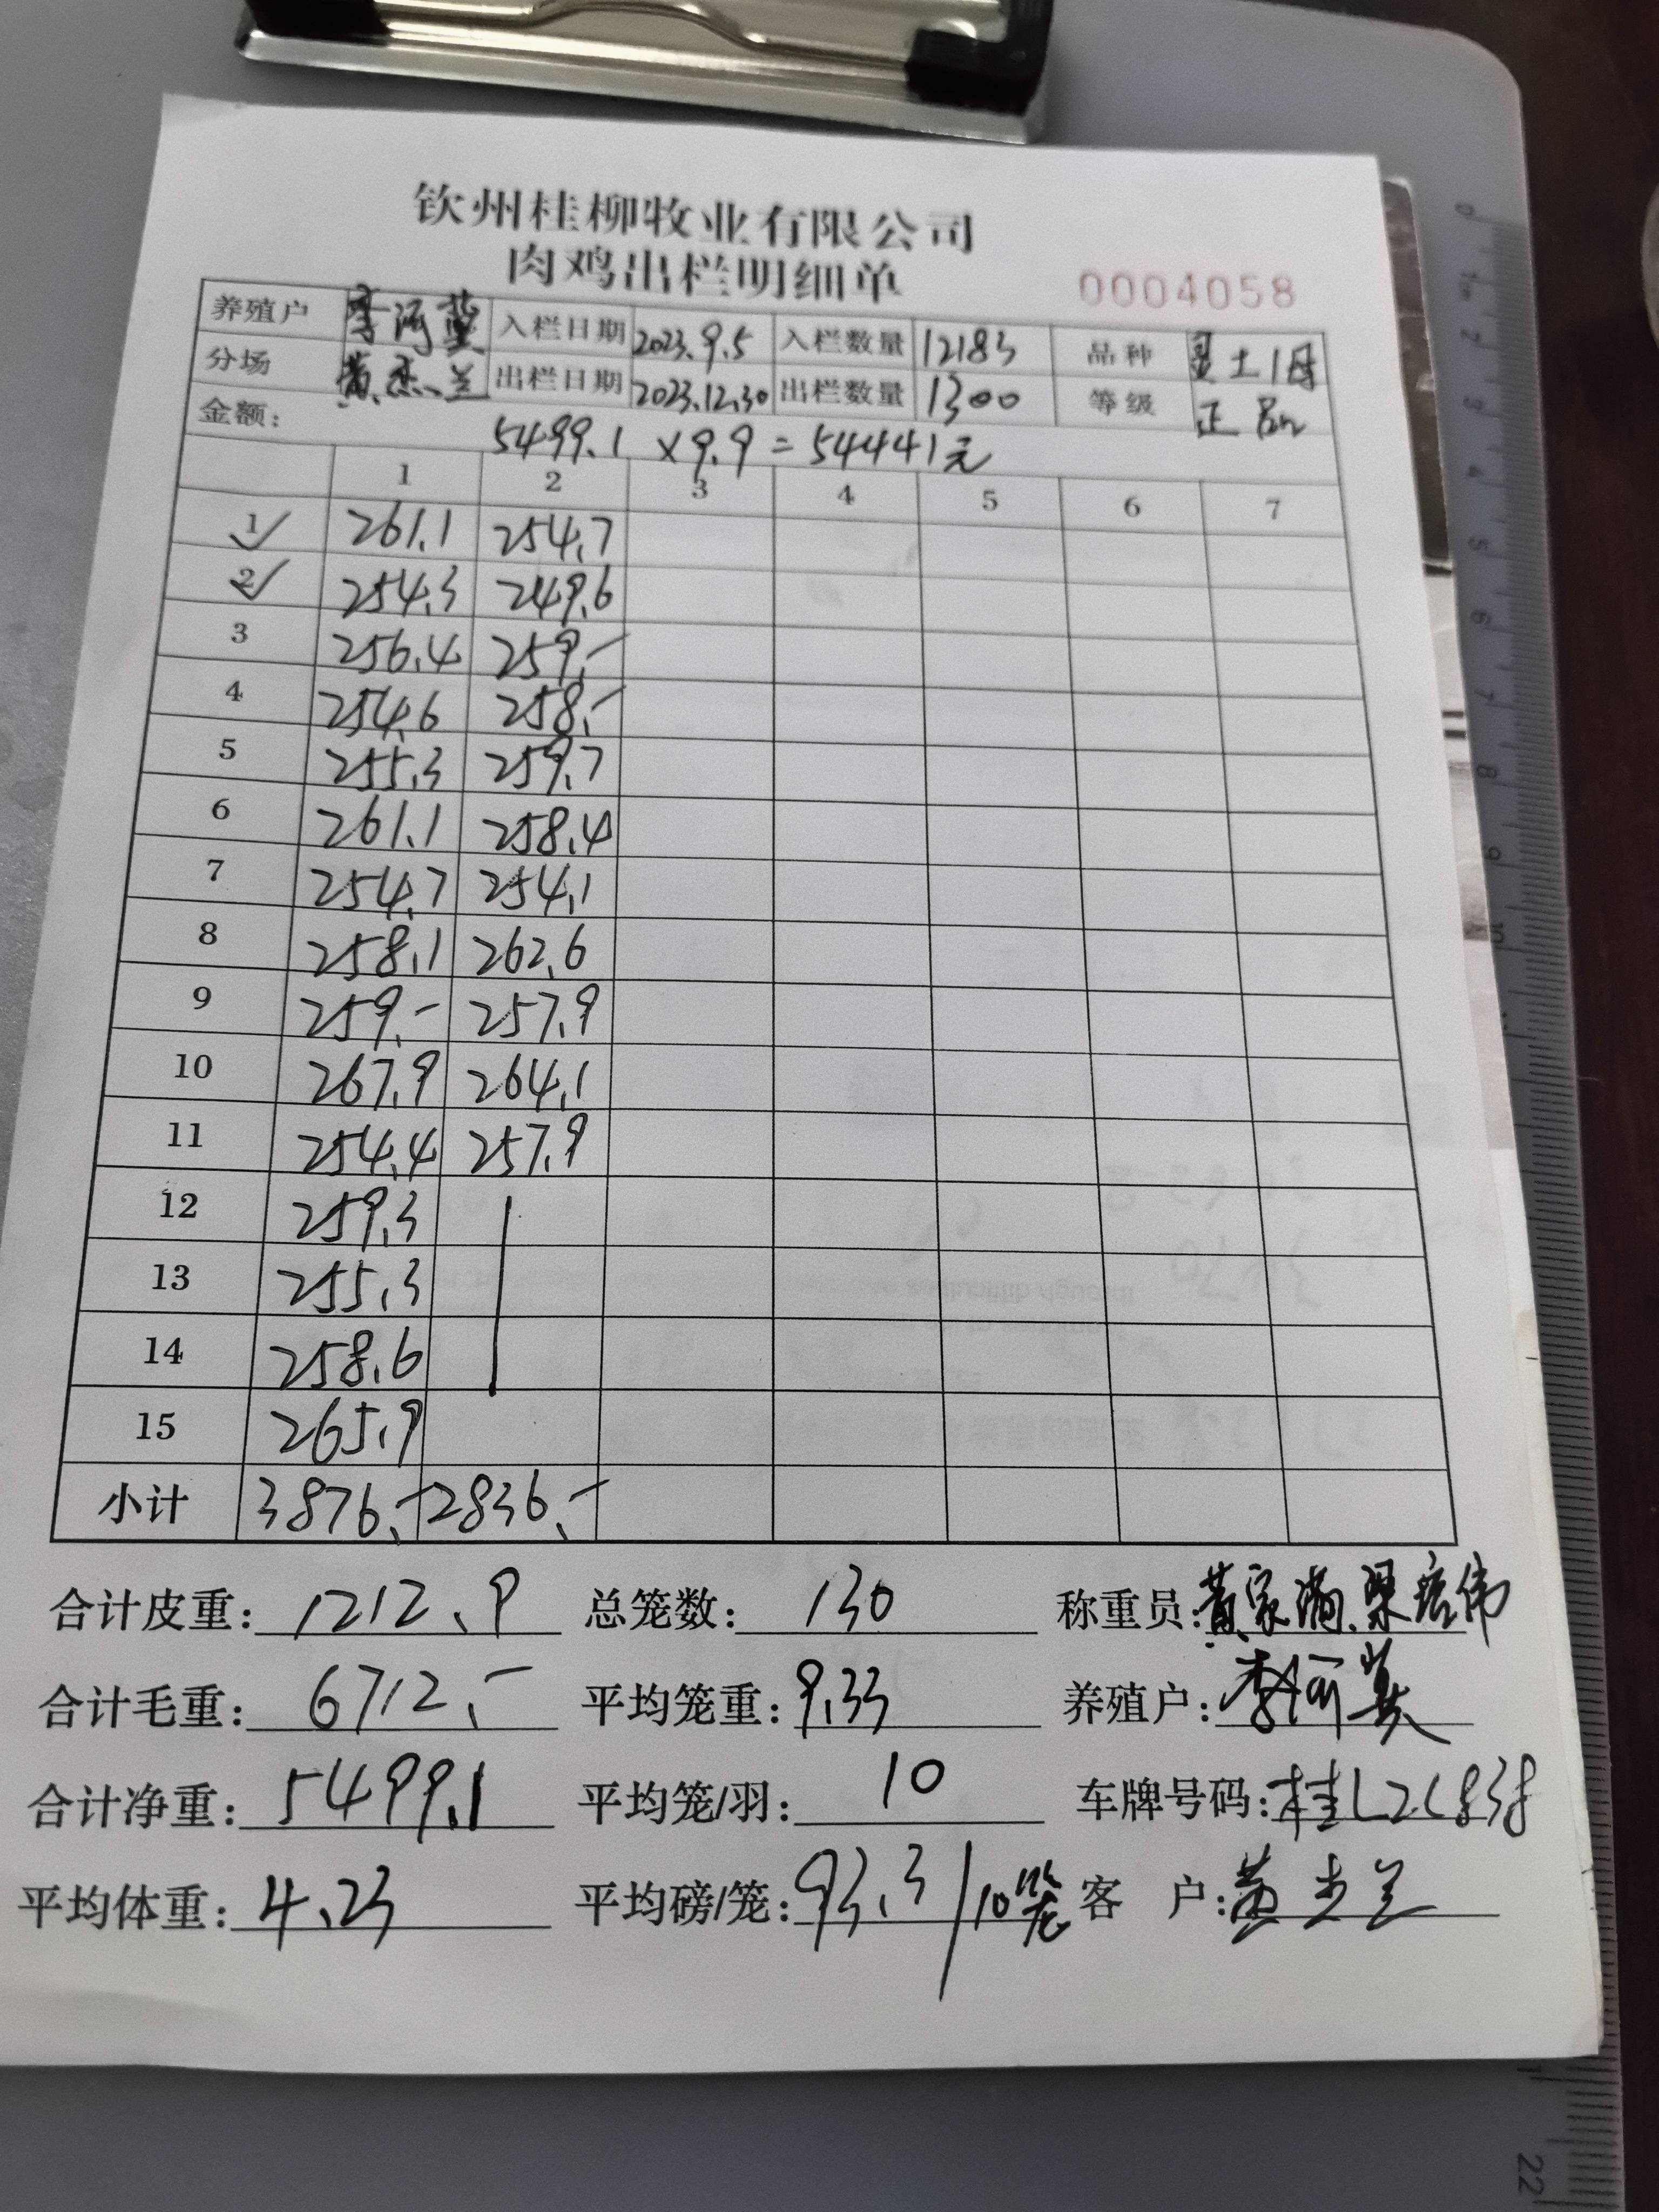 钦州桂柳牧业有限公司
肉鸡出栏明细单
0004058
养殖户 李河 入栏日期 2023.9.5 入栏数量 12183 品种 土1母
分场 黄杰兰 出栏日期 2023.12.30 出栏数量 1300 等级 正品
金额: 5499.1 ×9.9=54441元
1 2 3 4 5 6 7
1 261.1 254.7
2 254.3 249.6
3 256.4 259.-
4 254.6 258.-
5 255.3 259.7
6 261.1 258.4
7 254.7 254.1
8 258.1 262.6
9 259.- 257.9
10 267.9 264.1
11 254.4 257.9
12 259.3
13 255.3
14 258.6
15 265.9
小计 3876.- 2836.-
合计皮重: 1212.9 总笼数: 130 称重员: 黄家满.梁
合计毛重: 6712.- 平均笼重: 9.33 养殖户: 李河
合计净重: 5499.1 平均笼/羽: 10 车牌号码: 桂L
平均体重: 4.23 平均磅/笼: 93.3/10笼 客 户: 黄 兰
0 1 2 3 4 5 6 7 8 9 10
22